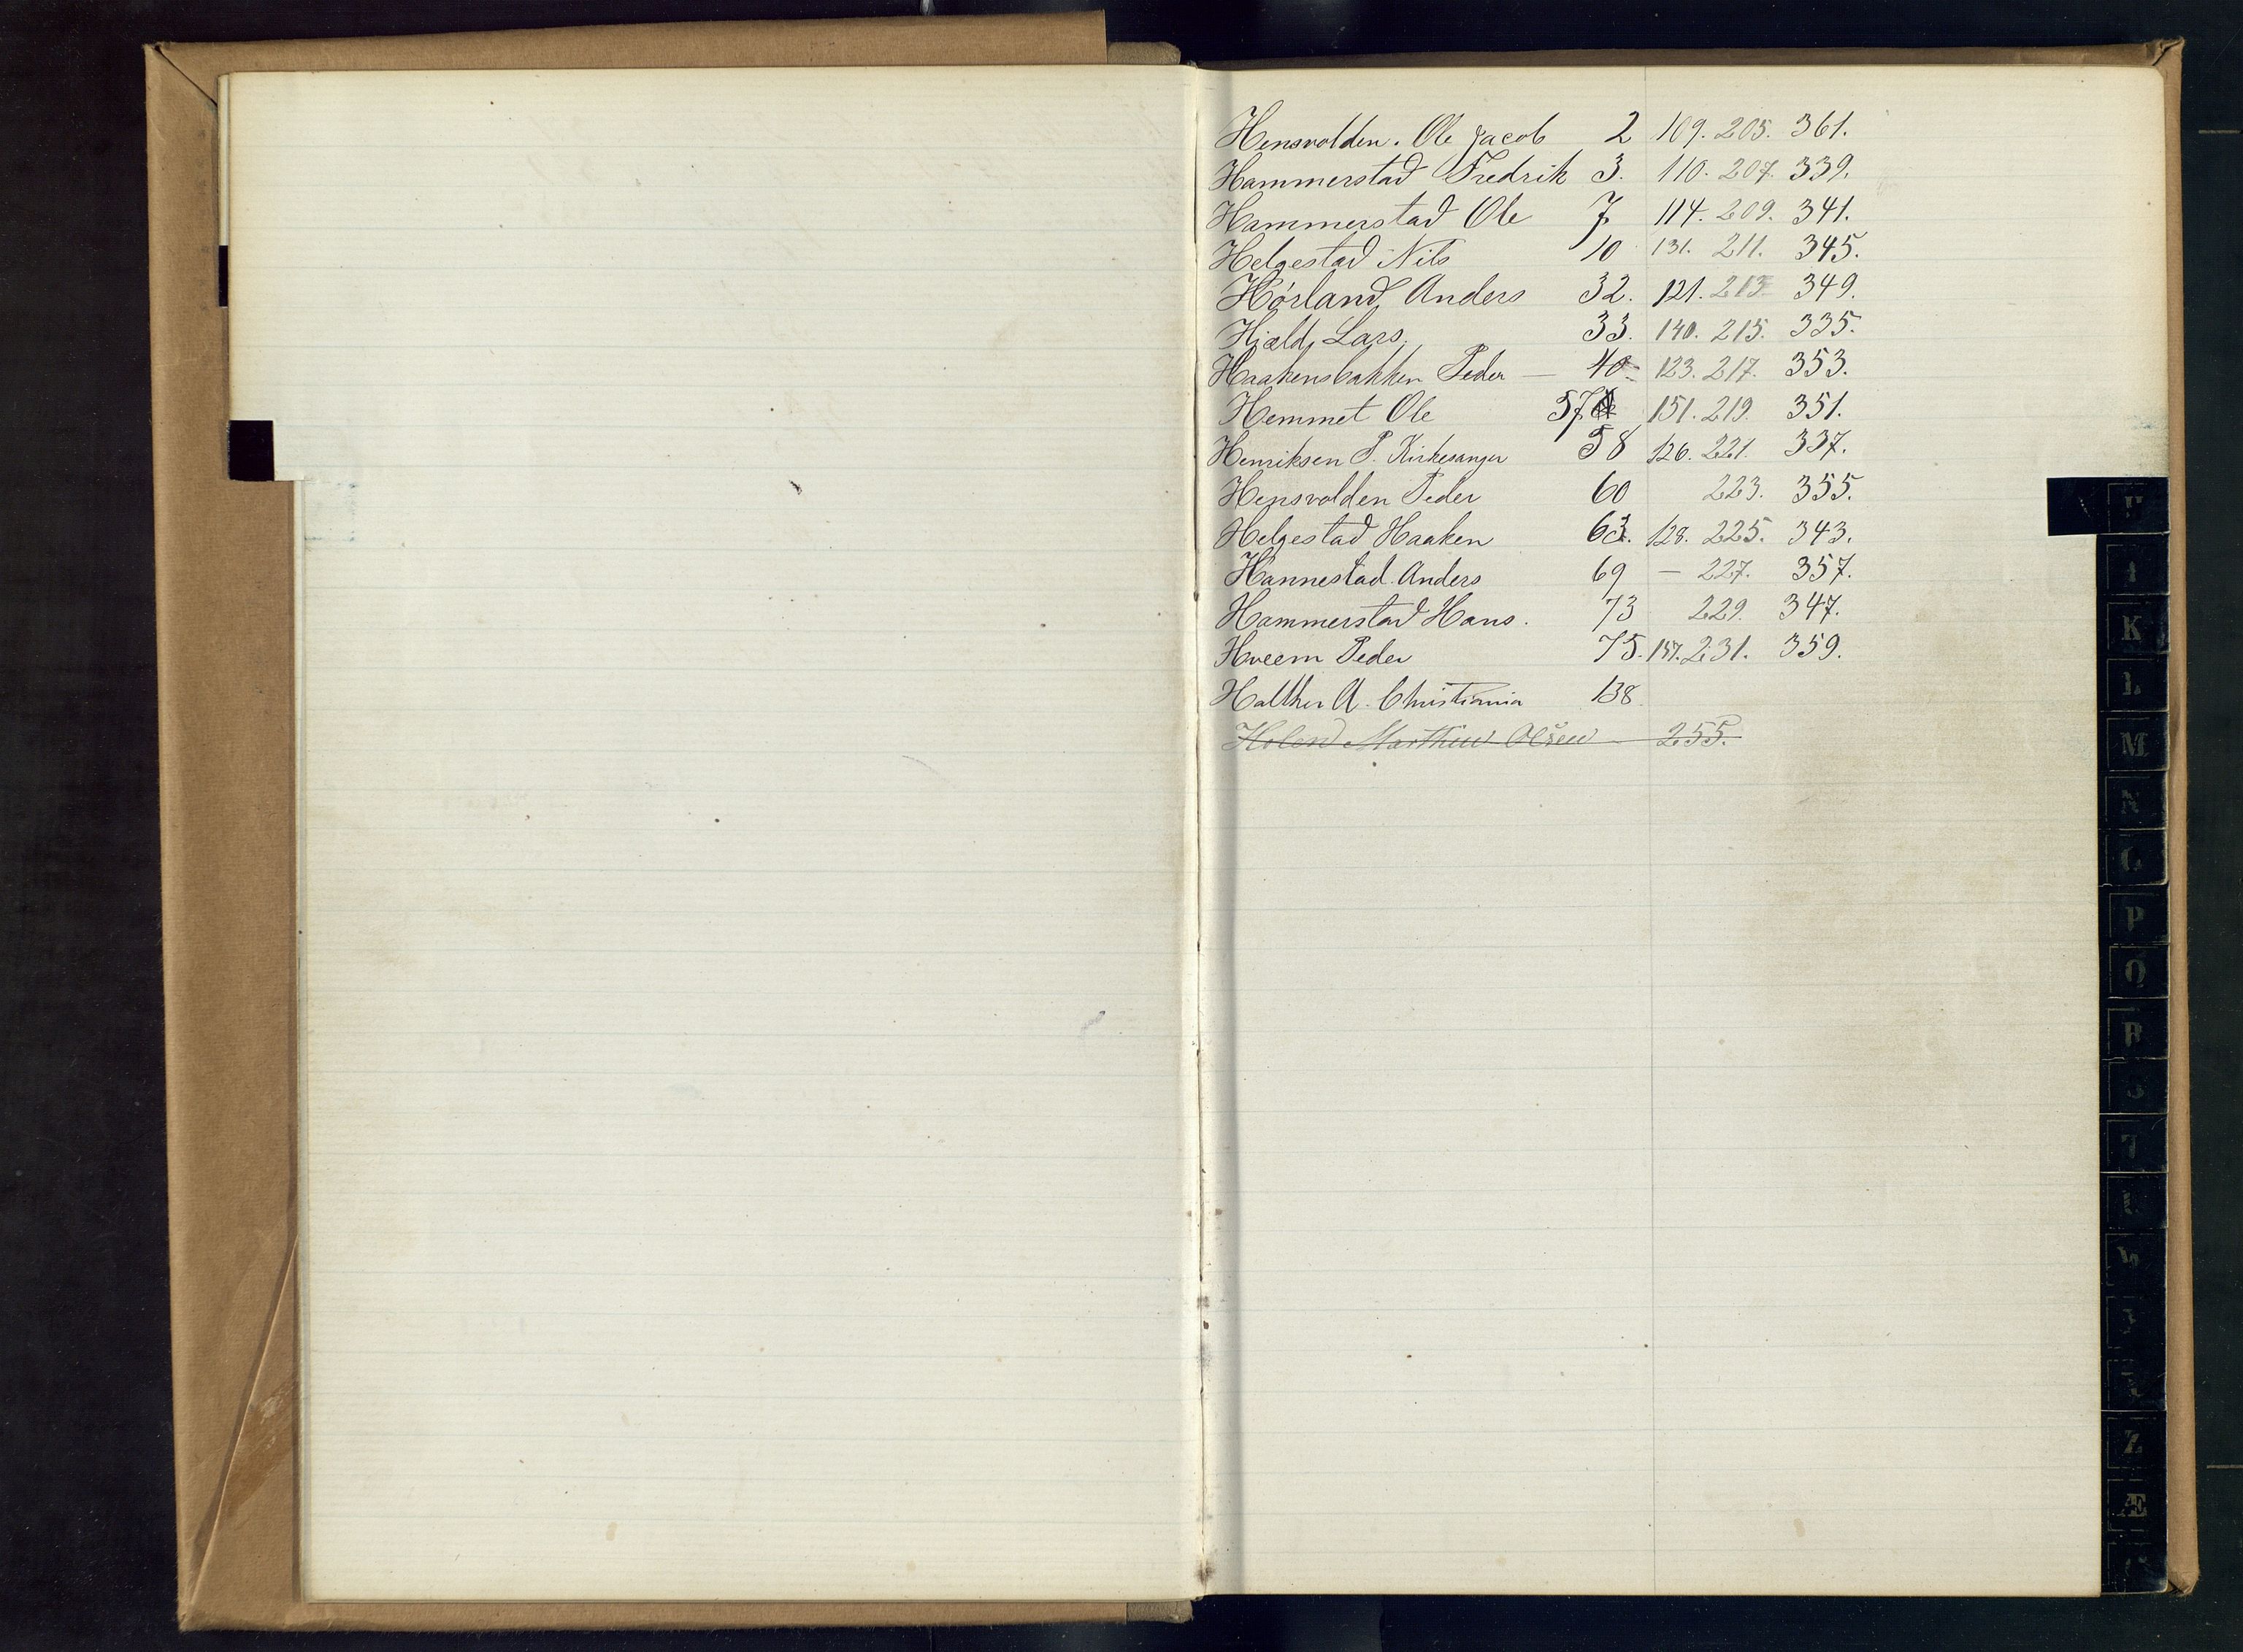 Hensvolden. Ole Jacob 2 109. 205. 361.
Hammerstad Fredrik 3. 110. 207. 339.
Hammerstad Ole 7 114. 209. 341.
Helgestad Nils 10 131. 211. 345.
Hörland, Anders 32. 121. 213 349.
Hjæld, Lars. 33. 140. 215. 335.
Haakensbakken Peder — 40 123. 217. 353.
Hemmet Ole 57 151. 219. 351.
Henriksen P. Kirkesanger 58 126. 221. 337.
Hensvolden Peder 60 223. 355.
Helgestad Haaken 63. 128. 225. 343.
Hannestad. Anders 69 — 227. 357.
Hammerstad Hans. 73 229. 347.
Hveem Peder 75. 157. 231. 359.
Halther A. Christiania 138
Holand Marthin Olsen 255.
H
I
K
L
M
N
O
P
Q
R
S
T
W
Z
Æ